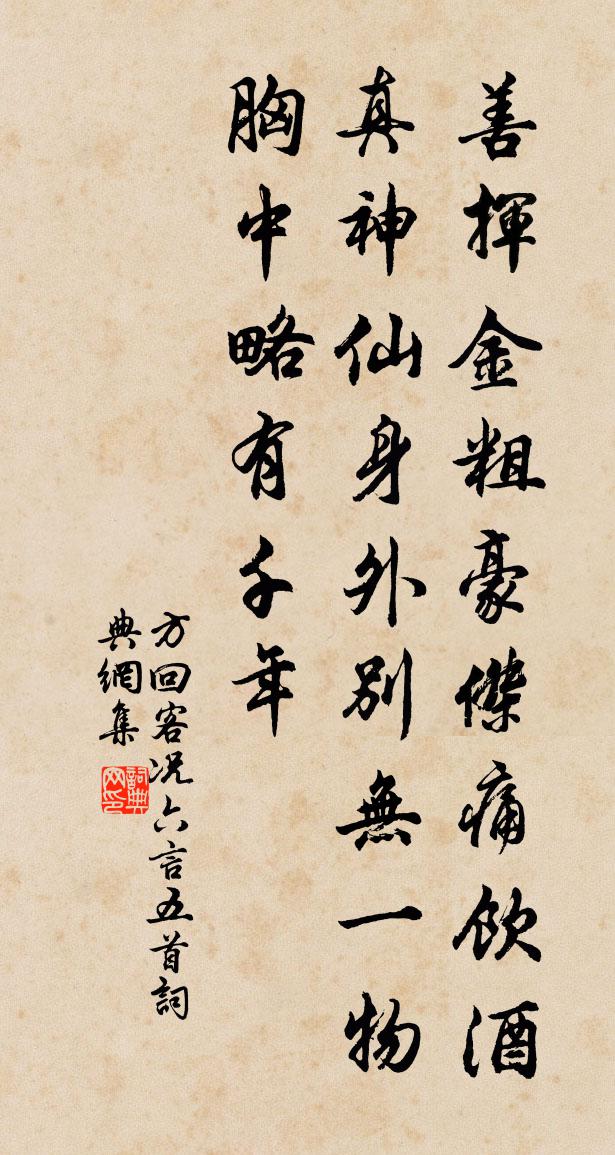 善揮金粗豪傑痛飲酒
真神仙身外別無一物
胸中略有千年
方回客况六言五首詞
典網集
詞典網印